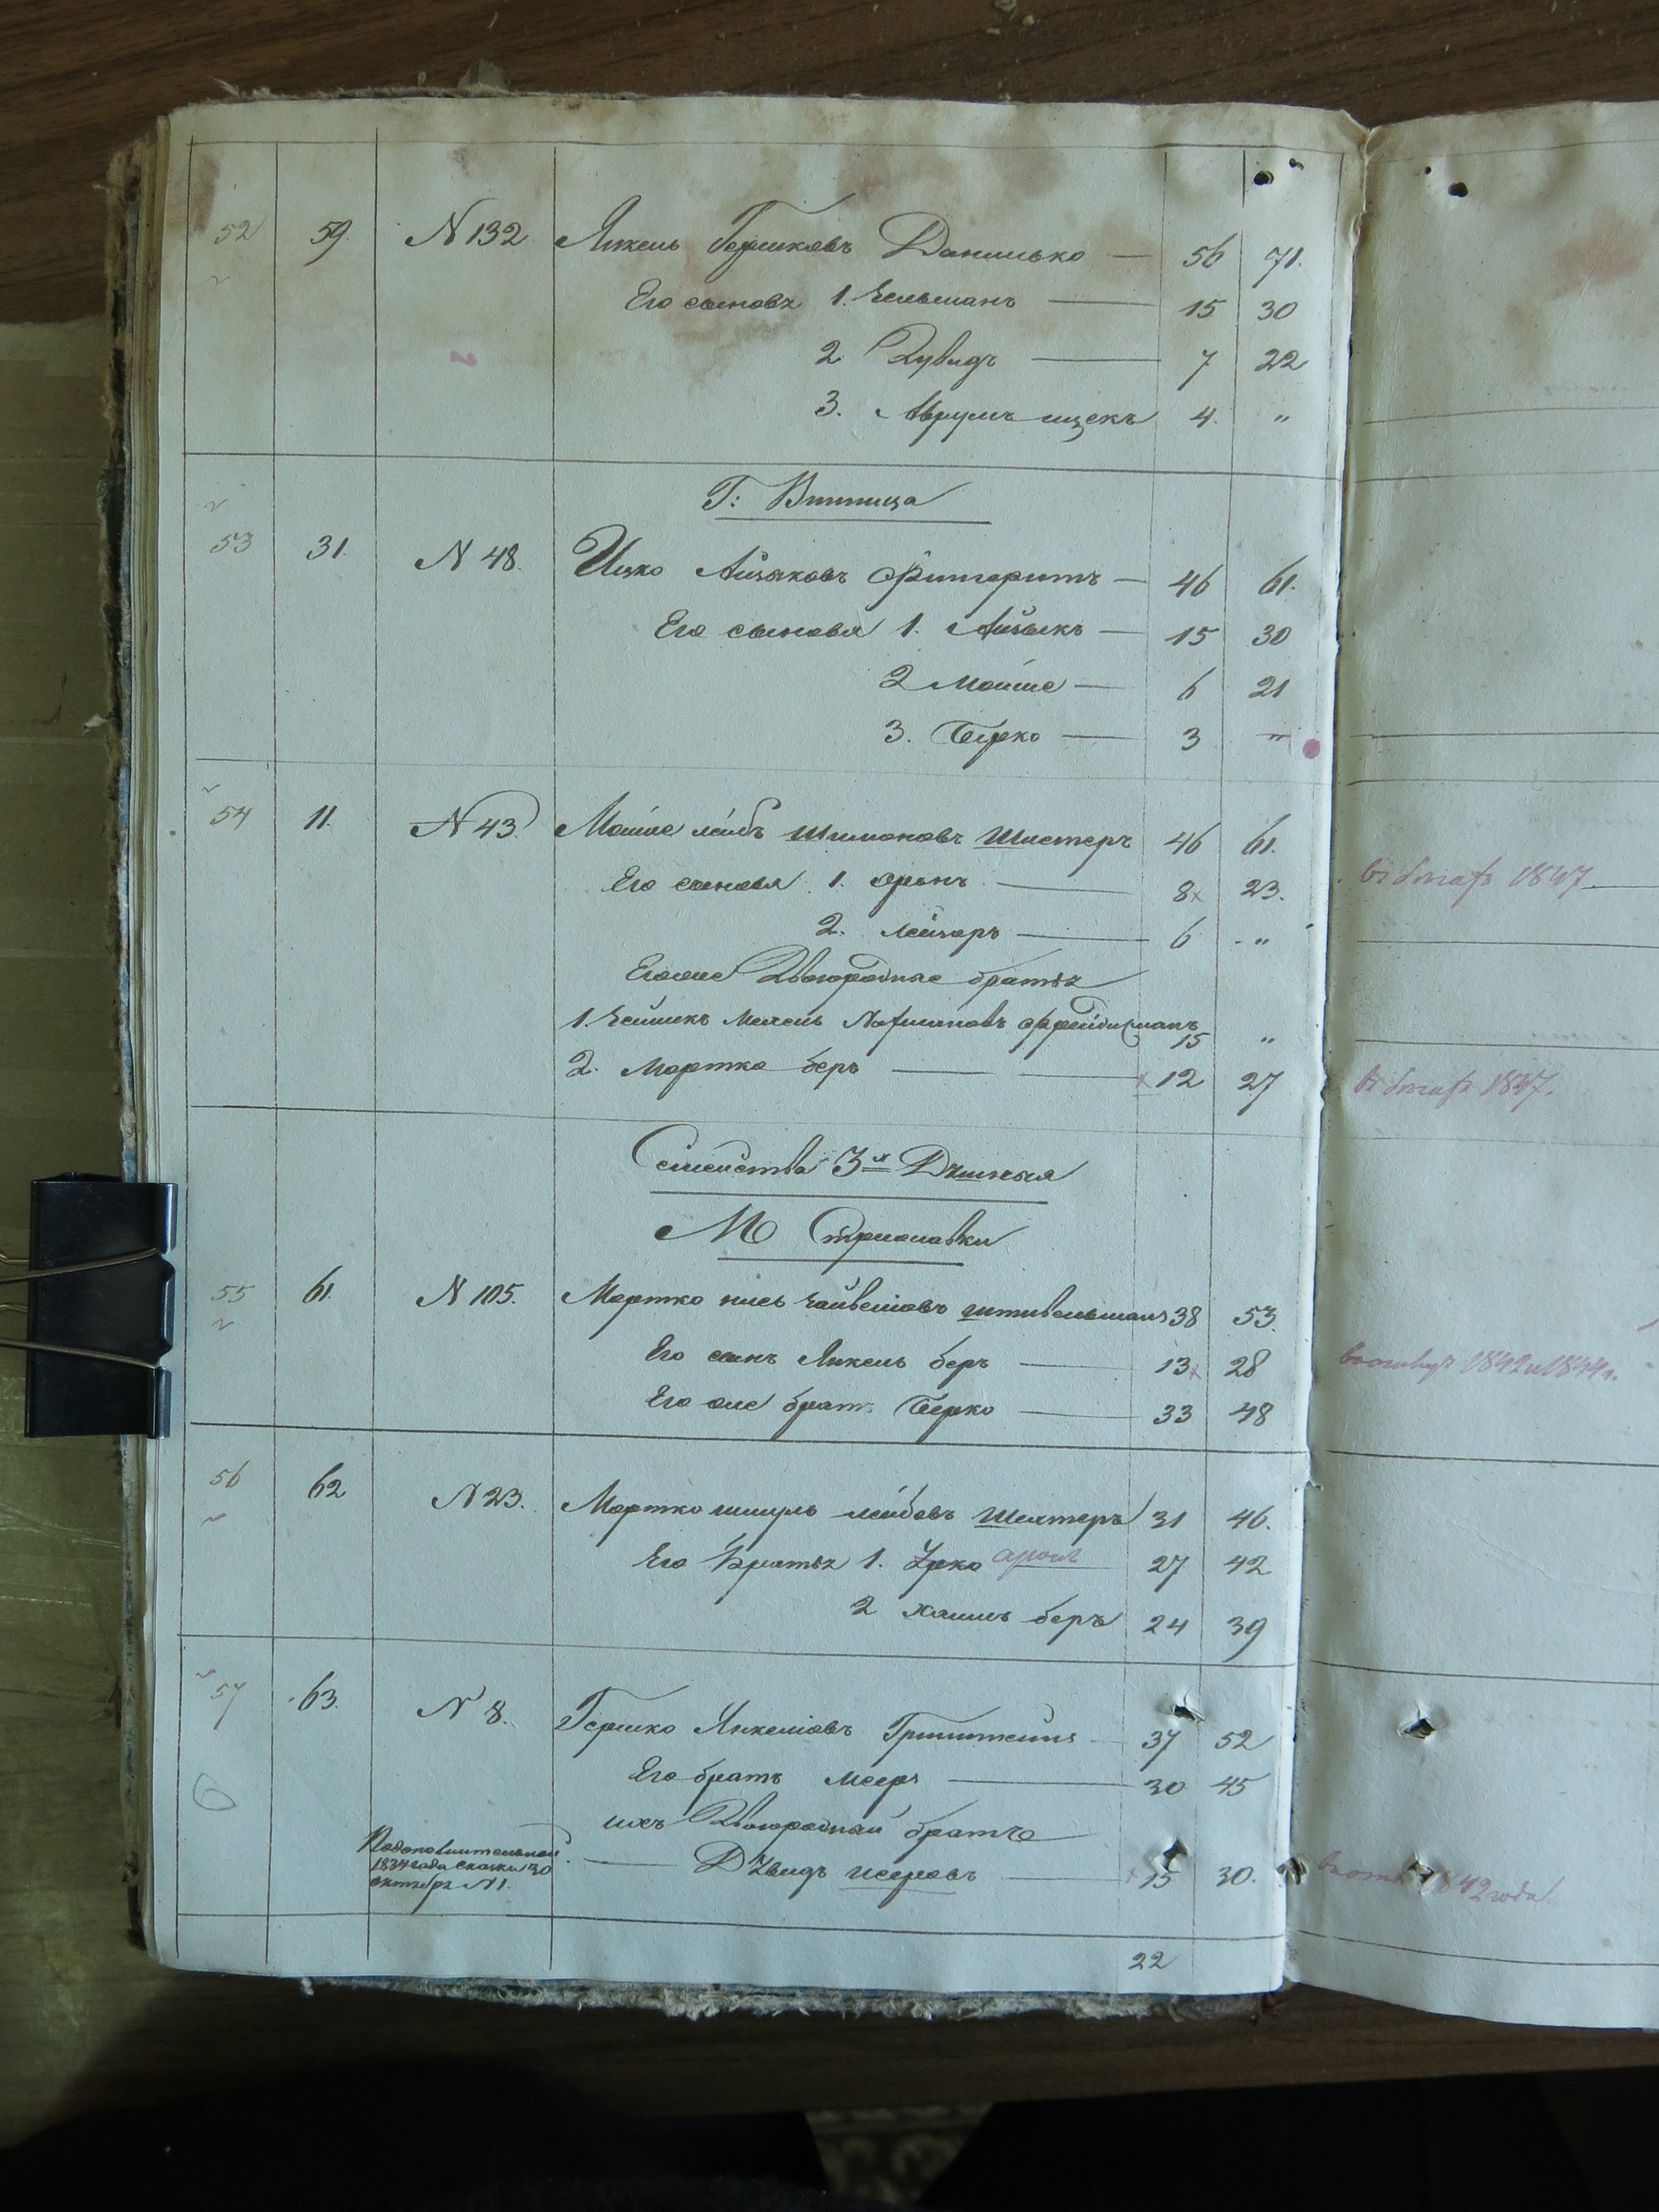 52 59. N 132 Янкель Гершковъ Данилько — 56 71.
Его сыновя 1. Зельманъ — 15 30
2 Дувидъ — 7 22
3. Аврумъ ицекъ 4. "
Г: Винница
53 31. N 48. Ицко Айзиковъ Фингеритъ — 46 61.
Его сыновя 1. Айзыкъ — 15 30
2 Мошие — 6 21
3. Берко — 3 "
54 11. N 43. Мошие лейбъ Шлиомовъ Шистеръ 46 61.
Его сыновя 1. Оронъ — 8x 23.
2. лейзоръ — 6 "
Егоже Двоюродные братья
1. Зейликъ Мехель Нафтулов 15 "
2. Мортко беръ — x 12 27
въ 1847
въ 1847.
Семейства 3я Душныя
М Стрижавки
55 61. N 105. Мортко нись Зайвелевъ штивельманъ 38 53.
Его сынъ Янкель беръ — 13x 28 1842 и 1844 г.
Его же братъ Берко — 33 48
56 62 N 23. Мортко шмуль лейбовъ Шехтеръ 31 46.
Его братья 1. Урко аронъ 27 42
2 хаимъ беръ 24 39
57 63. N 8. Гершко Янкелевъ Гринштейнъ — 37 52
Его братъ Мееръ — 30 45
ихъ Двоюродный братъ
По дополнительной
1834 года сказки 30
октября N 1.
— Дувидъ исеровъ — x 15 30. 1842 года
6
22